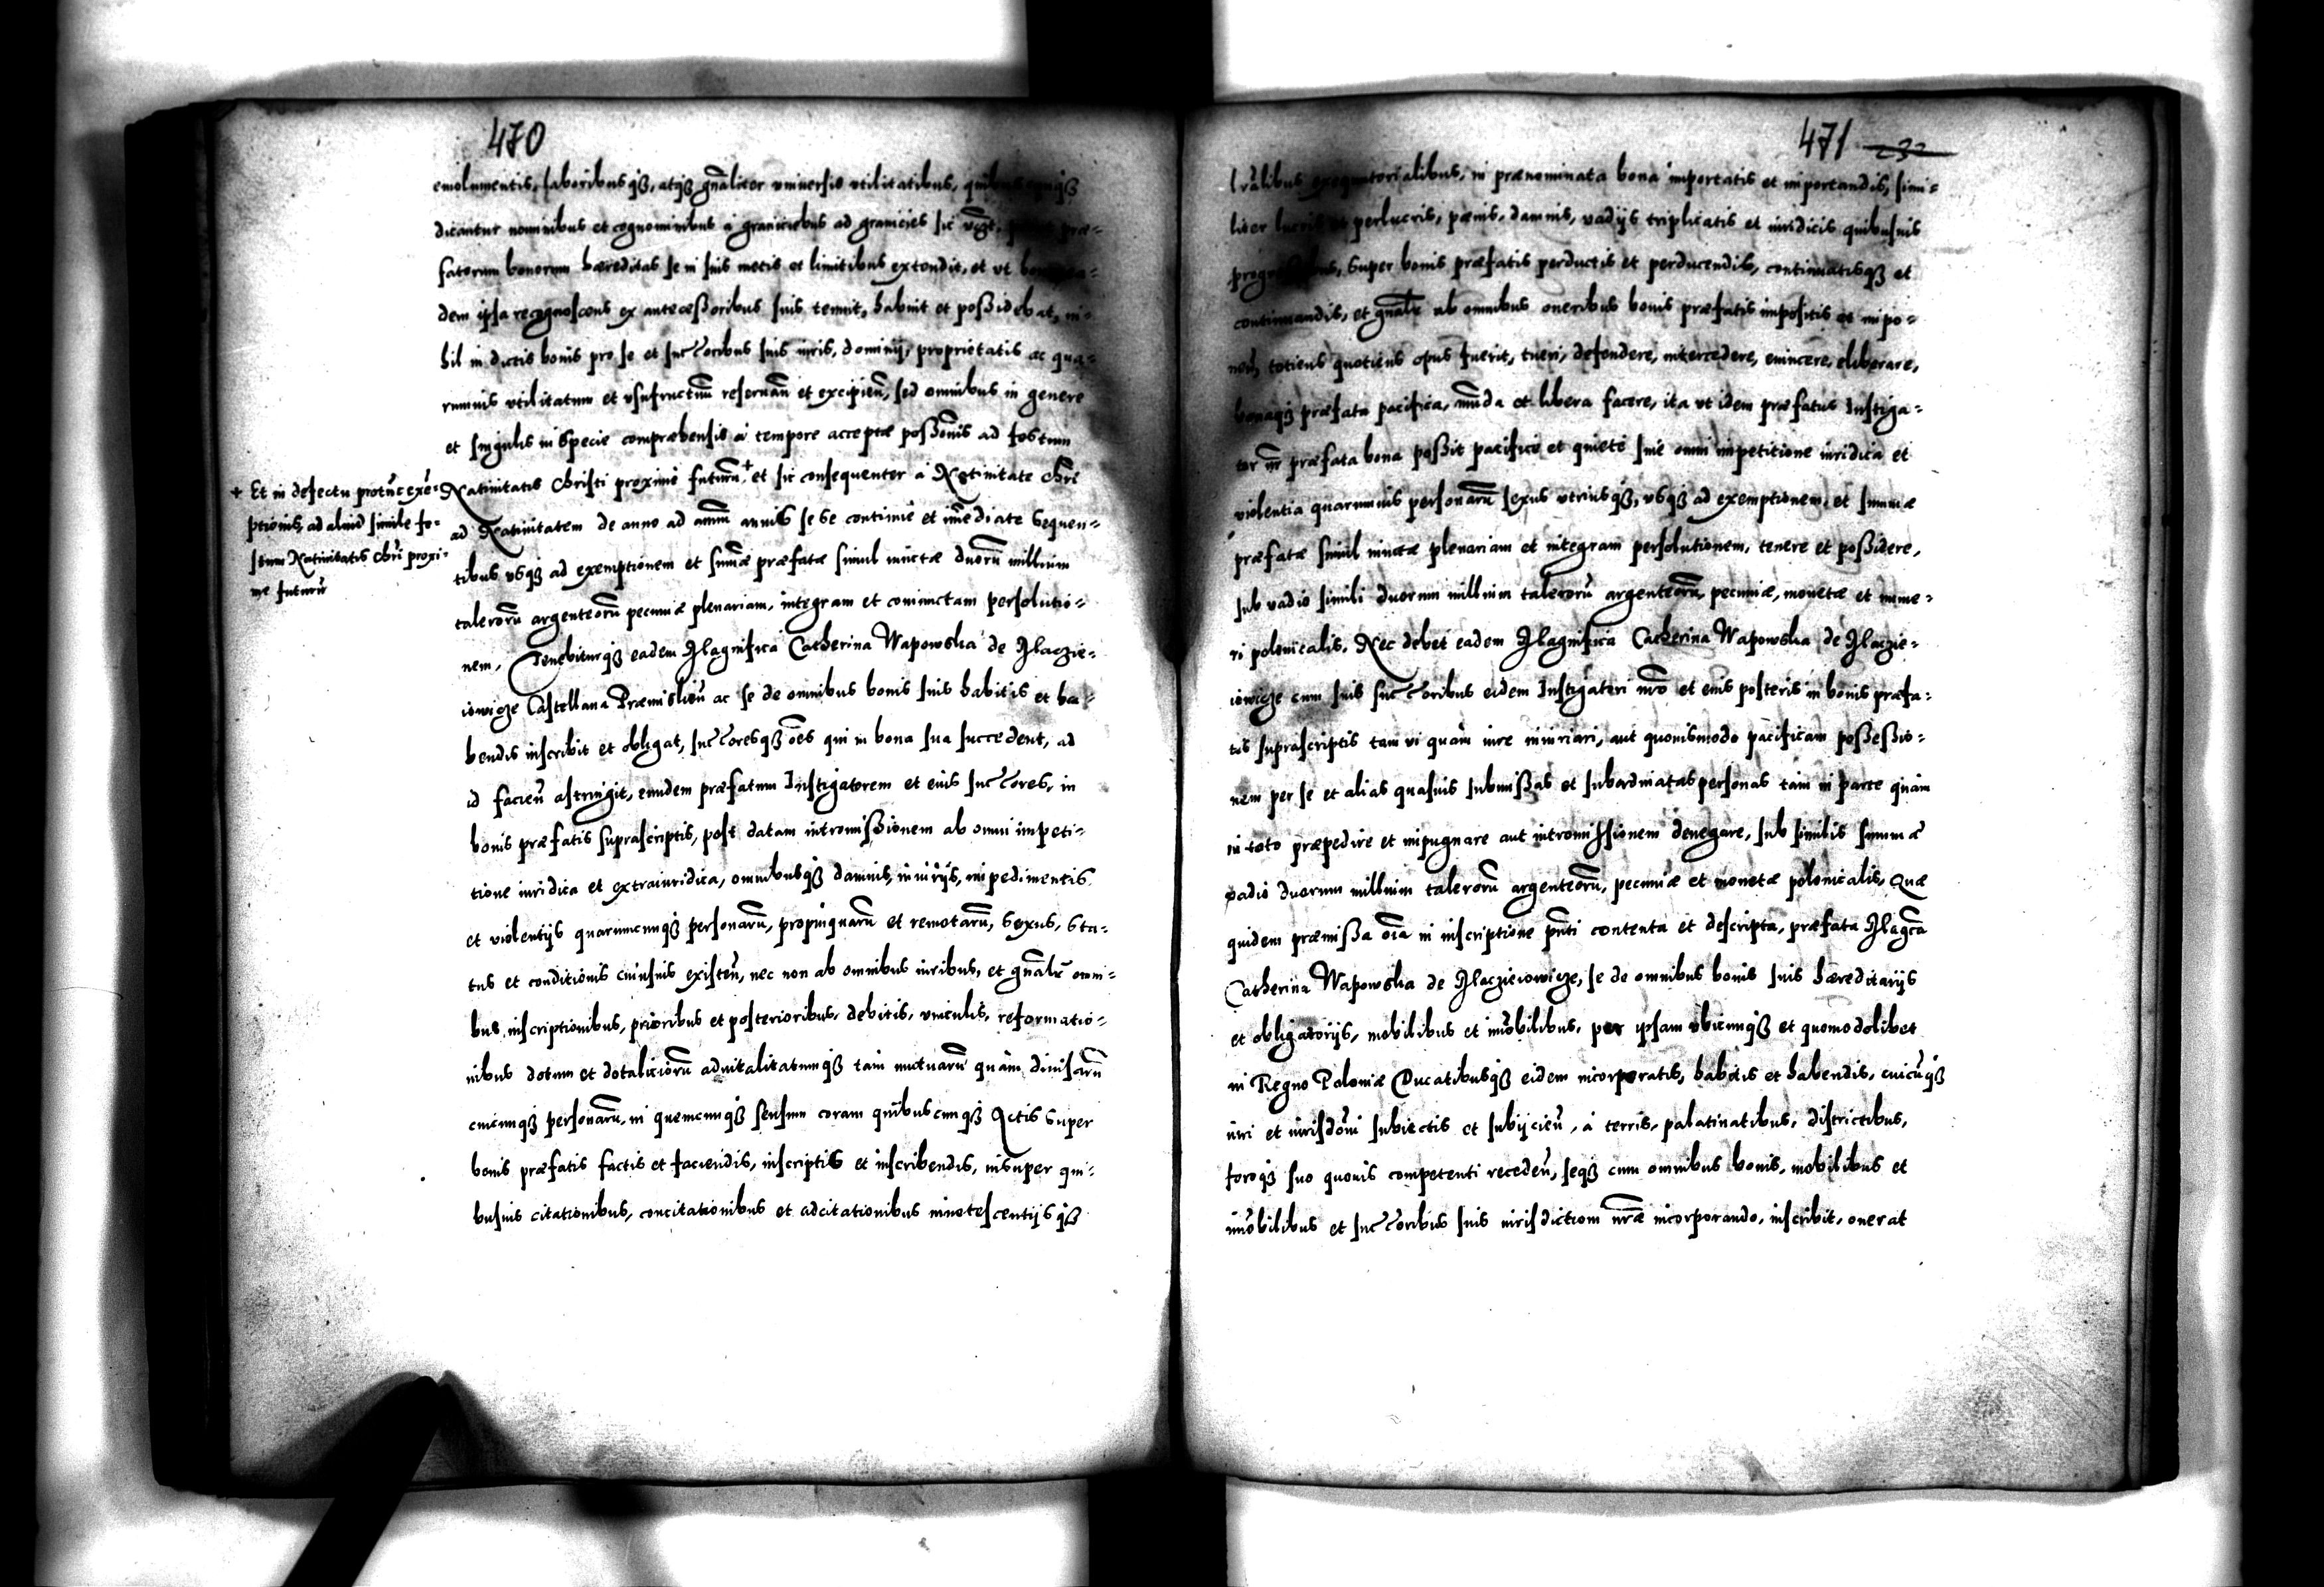 470
emolumentis, laboribusqȝ, atqȝ gñaliter vniuersis vtilitatibus, quibuscunqȝ
dicantur nominibus et cognominibus à graniciebus ad granicies sic præ-
fatorum bonorum hæreditas se in suis metis et limitibus extendit, et vt
dem ipsa recognoscens ex antecessoribus suis tenuit, habuit et possidebat, ni-
hil in dictis bonis pro se et succoribus suis iuris, dominij, proprietatis ac qua-
rumuis vtilitatum et vsufructuũ reseruañ et excipieñ, sed omnibus in genere
et singulis in specie compræhensis à tempore acceptæ possõnis ad festum
Natiuitatis Christi proximè futurũ + et sic consequenter à Natiuitate Chri
ad Natiuitatem de anno ad annũ annis se se continuè et im̃ediate sequen-
tibus vsqȝ ad exemptionem et sum̃æ præfatæ simul iunctæ duorũ millium
talerorũ argenteorũ pecuniæ plenariam, integram et coniunctam persolutio-
nem. Tenebiturqȝ eadem Magnifica Catherina Wapowska de Maczie-
iowicze Castellana Præmislieñ ac se de omnibus bonis suis habitis et ha-
bendis inscribit et obligat, succoresqȝ oẽs qui in bona sua succedent, ad
id facieñ astringit, eundem præfatum Instigatorem et eius succores, in
bonis præfatis suprascriptis, post datam intromissionem ab omni impeti-
tione iuridica et extraiuridica, omnibusqȝ damnis, iniurijs, impedimentis
et violentijs quarumcunqȝ personarũ, propinquarũ et remotarũ, sexus, sta-
tus et conditionis cuiusuis existeñ, nec non ab omnibus iuribus, et gñalr̃ omni-
bus inscriptionibus, prioribus et posterioribus, debitis, vinculis, reformatio-
nibus dotum et dotaliciorũ aduitalitatumqȝ tam mutuarũ quàm diuisarũ
cuicunqȝ personarũ, in quemcunqȝ sensum coram quibuscunqȝ Actis super
bonis præfatis factis et faciendis, inscriptis et inscribendis, insuper qui-
busuis citationibus, concitationibus et adcitationibus innotescentijsqȝ
+ Et in defectu protũc exẽ-
ptionis, ad aliud simile fe-
stum Natiuitatis Chri proxi-
me futurũ
471 232
lralibus exequutorialibus, in prænominata bona importatis et importandis, simi-
liter lucris et perlucris, pænis, damnis, vadijs triplicatis et iuridicis quibusuis
super bonis præfatis perductis et perducendis, continuatisqȝ et
continuandis, et gñalr̃ ab omnibus oneribus bonis præfatis impositis et impo-
neñ, totiens quotiens opus fuerit, tueri, defendere, intercedere, euincere, eliberare,
bonaqȝ præfata pacifica, mũda et libera facere, ita vt idem præfatus Instiga-
tor nr̃ præfata bona possit pacificè et quietè sine omni impetitione iuridica et
violentia quarumuis personarũ sexus vtriusqȝ, vsqȝ ad exemptionem et summæ
præfatæ simul iunctæ plenariam et integram persolutionem, tenere et possidere,
sub vadio simili duorum millium talerorũ argenteorũ, pecuniæ, monetæ et nume-
ri polonicalis. Nec debet eadem Magnifica Catherina Wapowska de Maczie-
iowicze cum suis succoribus eidem Instigatori nr̃o et eius posteris in bonis præfa-
tis suprascriptis tam vi quàm iure iniuriari, aut quouismodo pacificam possessio-
nem per se et alias quasuis submissas et subordinatas personas tam in parte quàm
in toto præpedire et impugnare aut intromissionem denegare, sub similis summæ
vadio duorum millium talerorũ argenteorũ, pecuniæ et monetæ polonicalis. Quæ
quidem præmissa oĩa in inscriptione pñti contenta et descripta, præfata Magca
Catherina Wapowska de Maczieiowicze, se de omnibus bonis suis hæreditarijs
et obligatorijs, mobilibus et im̃obilibus, per ipsam vbicunqȝ et quomodolibet
in Regno Poloniæ Ducatibusqȝ eidem incorporatis, habitis et habendis, cuicũqȝ
iuri et iurisdõni subiectis et subijcieñ, à terris, palatinatibus, districtibus,
foroqȝ suo quouis competenti recedeñ, seqȝ cum omnibus bonis, mobilibus et
im̃obilibus et succoribus suis iurisdictioni nr̃æ incorporando, inscribit, onerat